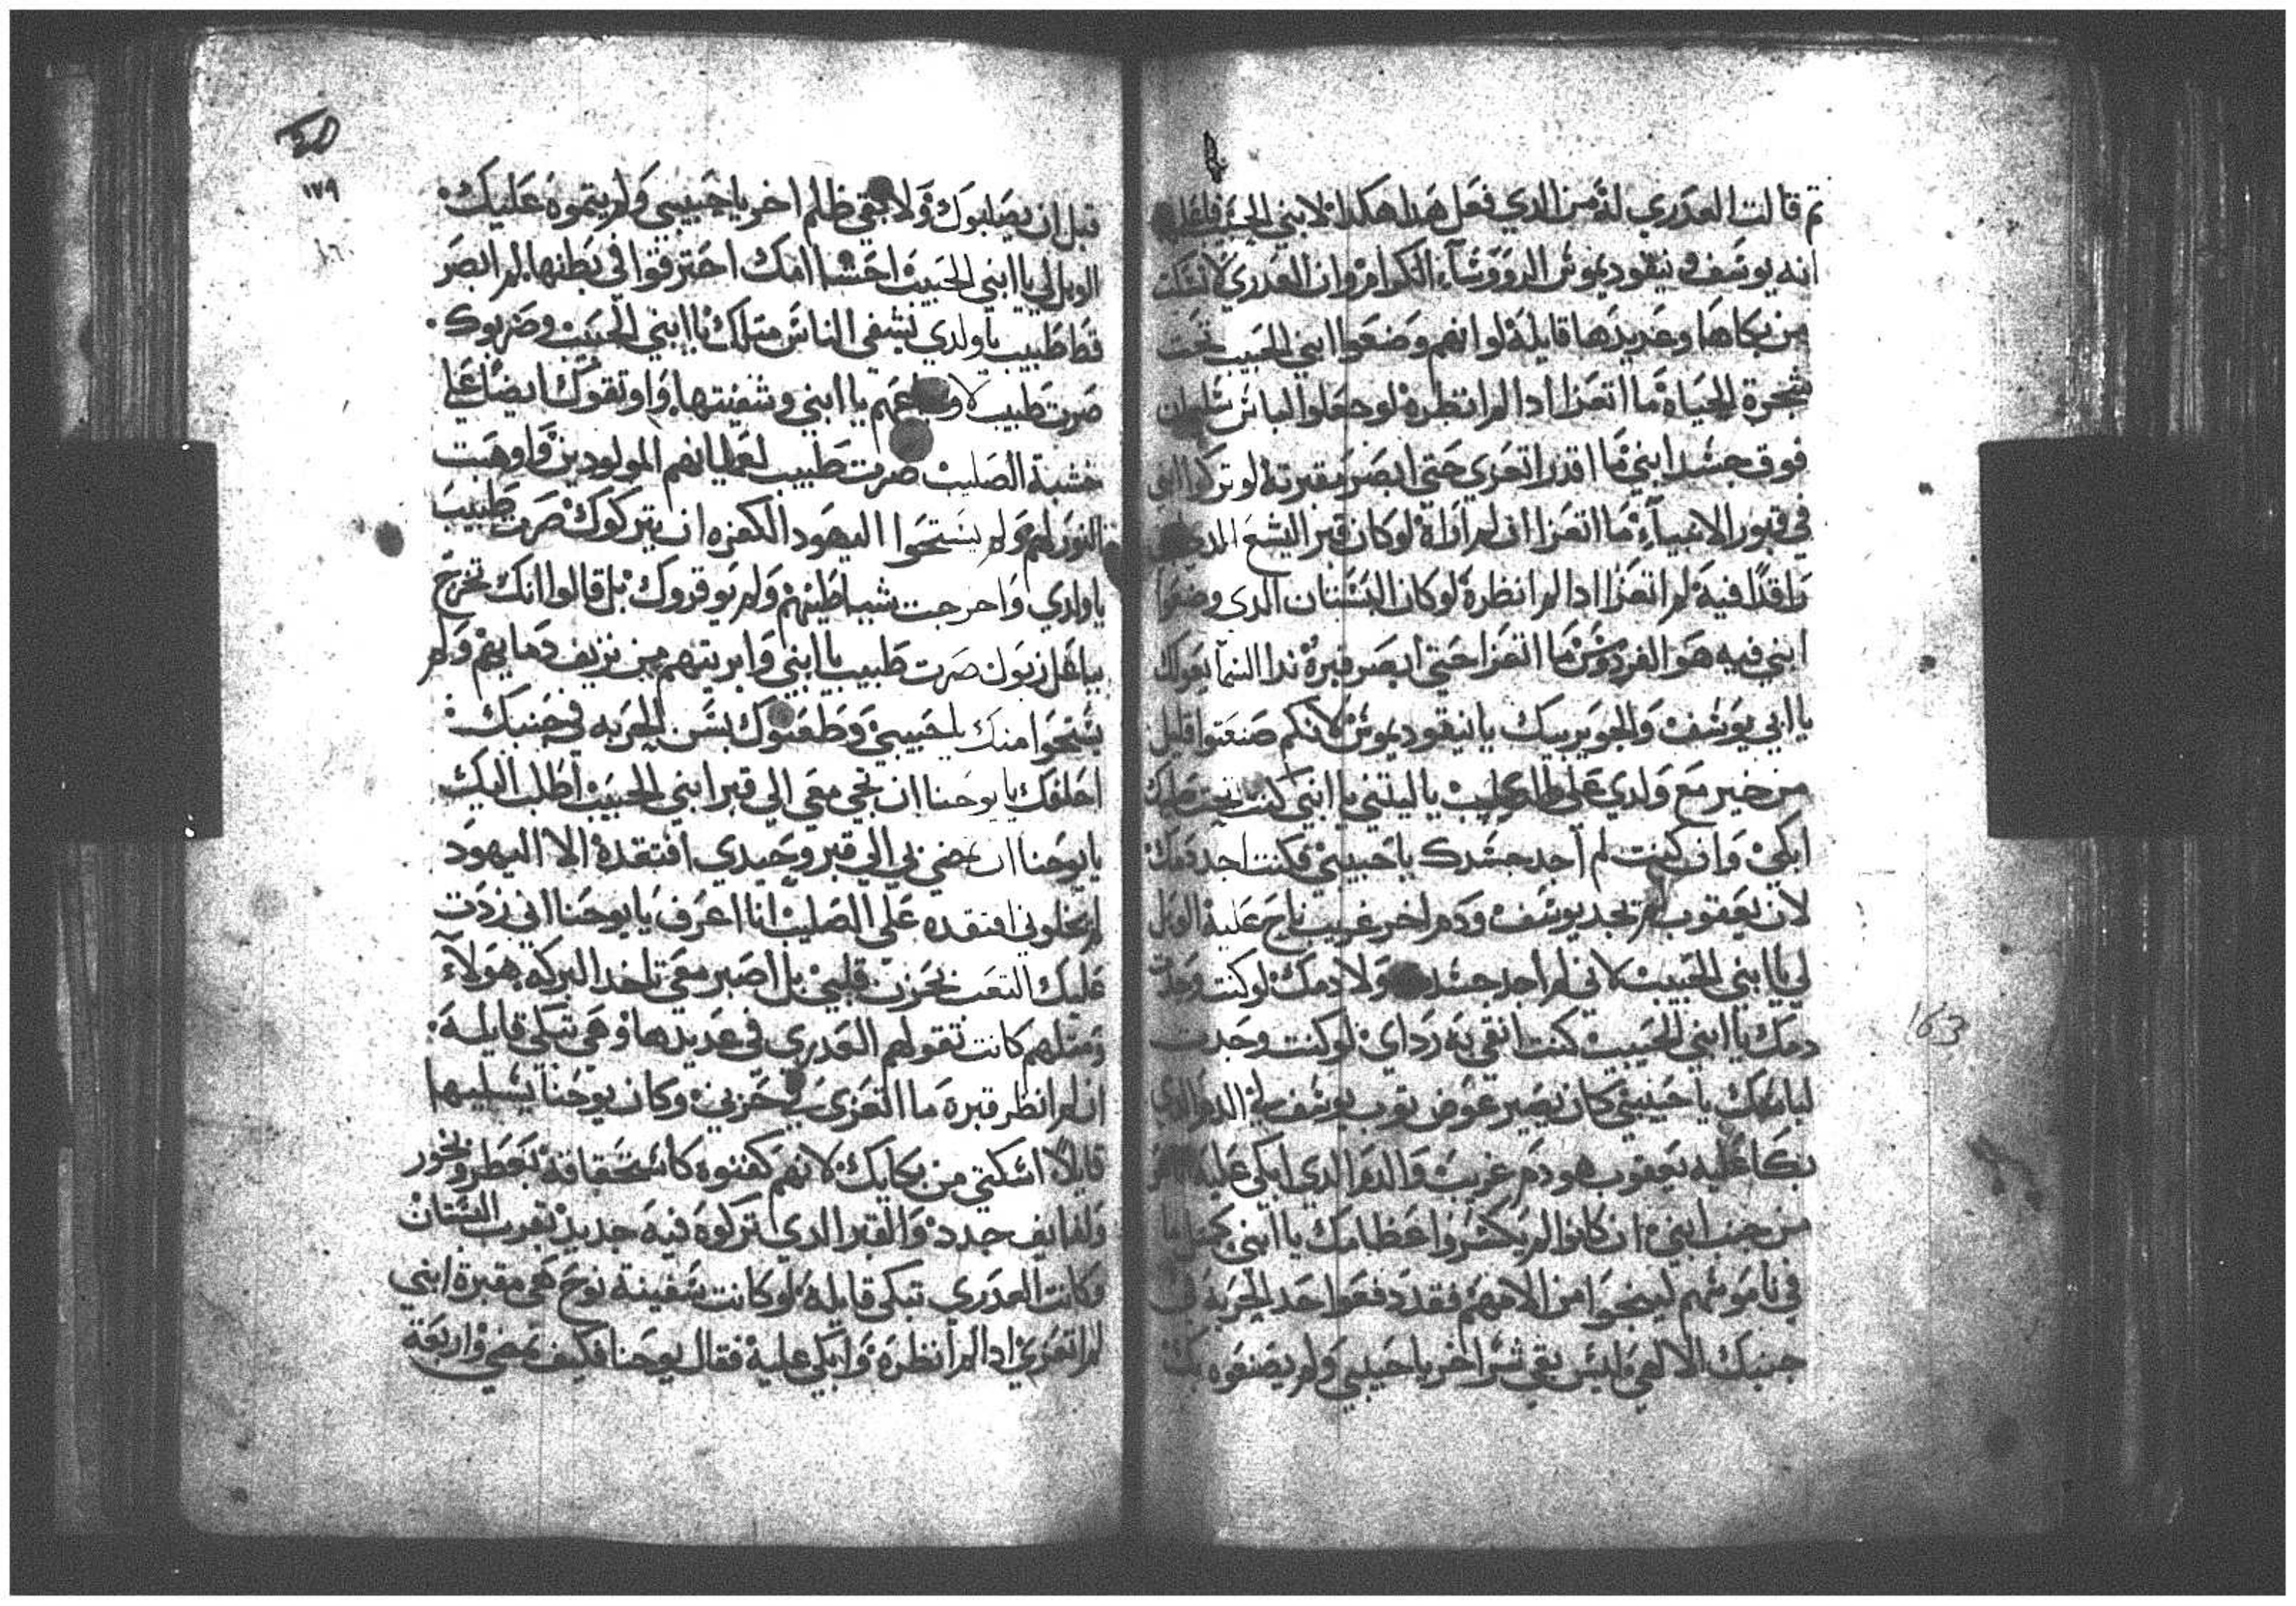 تم قالت العدري له من الدي فعل هدا هكدا لابني الحبيب
انه يوسف ونيقوديموس الدووسآء الكرام وان العدري لا تسكت
من بكاها وعديدها قايلة لو انهم وضعوا ابني الحبيب تحت
شجرة الحياه ما اتعزا ادا لم انظره لو جعلوا لباس سليمان
فوق جسد ابني ما اقدر اتعزي حتي ابصر مقبرته لو تركوا ابني
في قبور الانبيآء ما اتعزا ان لم اراه لو كان قبر اليشع
راقدًا فيه لم اتعزا ادا لم انظره لو كان البستان الدي وضعوا
ابني فيه هو الفردوس ما اتعزا حتي ابصر قبره ندا السمآ يعولك
يا ابي يوسف والجو يربيك يا نيقوديموس لانكم صنعتوا قليل
من خير مع ولدي علي الصليب يا ليتني يا ابني كنت تحت صليبك
ابكي وان كنت لم اجد جسدك يا حبيبي فكنت اجد دمك
لان يعقوب لم يجد يوسف ودم اخر غريب ناح عليه الويل
لي يا ابني الحبيب لاني لم اجد جسدك ولا دمك لو كنت وجدت
دمك يا ابني الحبيب كنت انقي به رداي لو كنت وجدت
لباسك يا حبيبي كان يصير عوض توب يوسف الدم الدي
بكا عليه يعقوب هو دم غريب والدم الدي ابكي عليه
من جنب ابني ان كانوا لم يكسروا عظامك يا ابني كمتل ما
في ناموسهم لينجوا من الاتهم فقد دفعوا حد الحربه في
جنبك الالهي وليس بقي شرا اخر يا حبيبي ولم يصنعوه بك
١٧٩
قبل ان يصلبوك ولا بقي ظلم اخر يا حبيبي ولم يتموه عليك
الويل لي يا ابني الحبيب احشا امك احترقوا في بطنها لم ابصر
قط طبيب يا ولدي يشفي الناس متلك يا ابني الحبيب وضربوك
صرت طبيب لاوجاعهم يا ابني وشفيتها واوتقوك ايضا علي
خشبة الصليب صرت طبيب لعميانهم المولودين واوهبت
النور لهم ولم يستحوا اليهود الكفره ان يتركوك صرت طبيب
يا ولدي واخرجت شياطينهم ولم يوقروك بل قالوا انك تخرج
بباعلزبول صرت طبيب يا ابني وابريتهم من نزيف دمايهم ولم
يستحوا منك يا حبيبي وطعنوك بسن الحربه في جنبك
احلفك يا يوحنا ان تجي معي الي قبر ابني الحبيب اطلب اليك
يا يوحنا ان تمضي بي الي قبر وحيدي افتقده الا اليهود
لم يخلوني افتقده علي الصليب انا اعرف يا يوحنا اني زدت
عليك التعب بحزن قلبي بل اصبر معي تاخد البركه هولآء
ومتلهم كانت تقولهم العدري في عديدها وهي تبكي قايله
ان لم انظر قبره ما اتعزي في حزني وكان يوحنا يسليها
قايلًا اسكتي من بكايك لانهم كفنوه كاستحقاقه بعطر وبخور
ولفايف جدد والقبر الدي تركوه فيه جديد بقرب البستان
وكانت العدري تبكي قايله لو كانت سفينة نوح هي مقبرة ابني
لم اتعزي ادا لم انظره وابكي عليه فقال يوحنا فكيف نمضي واربعة
163